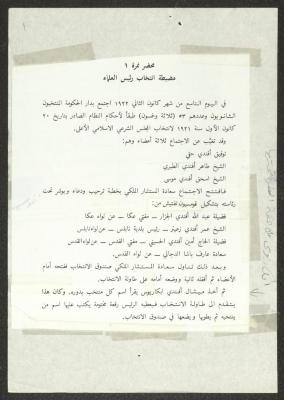 محضر نمرة ١
مضبطة انتخاب رئيس العلماء
في اليوم التاسع من شهر كانون الثاني ١٩٢٢ اجتمع بدار الحكومة المنتخبون
الثانويون وعددهم ٥٣ (ثلاثة وخمسون) طبقاً لأحكام النظام الصادر بتاريخ ٢٠
كانون الأول سنة ١٩٢١ لانتخاب المجلس الشرعي الاسلامي الأعلى.
وقد تغيّب عن الاجتماع ثلاثة أعضاء وهم:
توفيق أفندي حقي
الشيخ طاهر أفندي الطبري
الشيخ اسحق أفندي موسى
فافتتح الاجتماع سعادة المستشار الملكي بخطبة ترحيب ودعاء وبوشر تحت
رئاسته بتشكيل قومسيون تفتيش من:
فضيلة عبد الله أفندي الجزار – مفتي عكا – عن لواء عكا
الشيخ عمر أفندي زعيتر – رئيس بلدية نابلس – عن لواء نابلس
فضيلة الحاج أمين أفندي الحسيني – مفتي القدس – عن لواء القدس
سعادة عارف باشا الدجاني – عن لواء القدس.
وبعد ذلك تناول سعادة المستشار الملكي صندوق الانتخاب ففتحه أمام
الأعضاء ثم أقفله ثانية ووضعه أمامه على طاولة الانتخاب.
ثم أخذ ميشال أفندي ابكاريوس يقرأ اسم كل منتخب بدوره. وكان هذا
يتقدم الى طاولة الانتخاب فيعطيه الرئيس رقعة مختومة يكتب عليها اسم من
ينتخبه ثم يطويها ويضعها في صندوق الانتخاب.